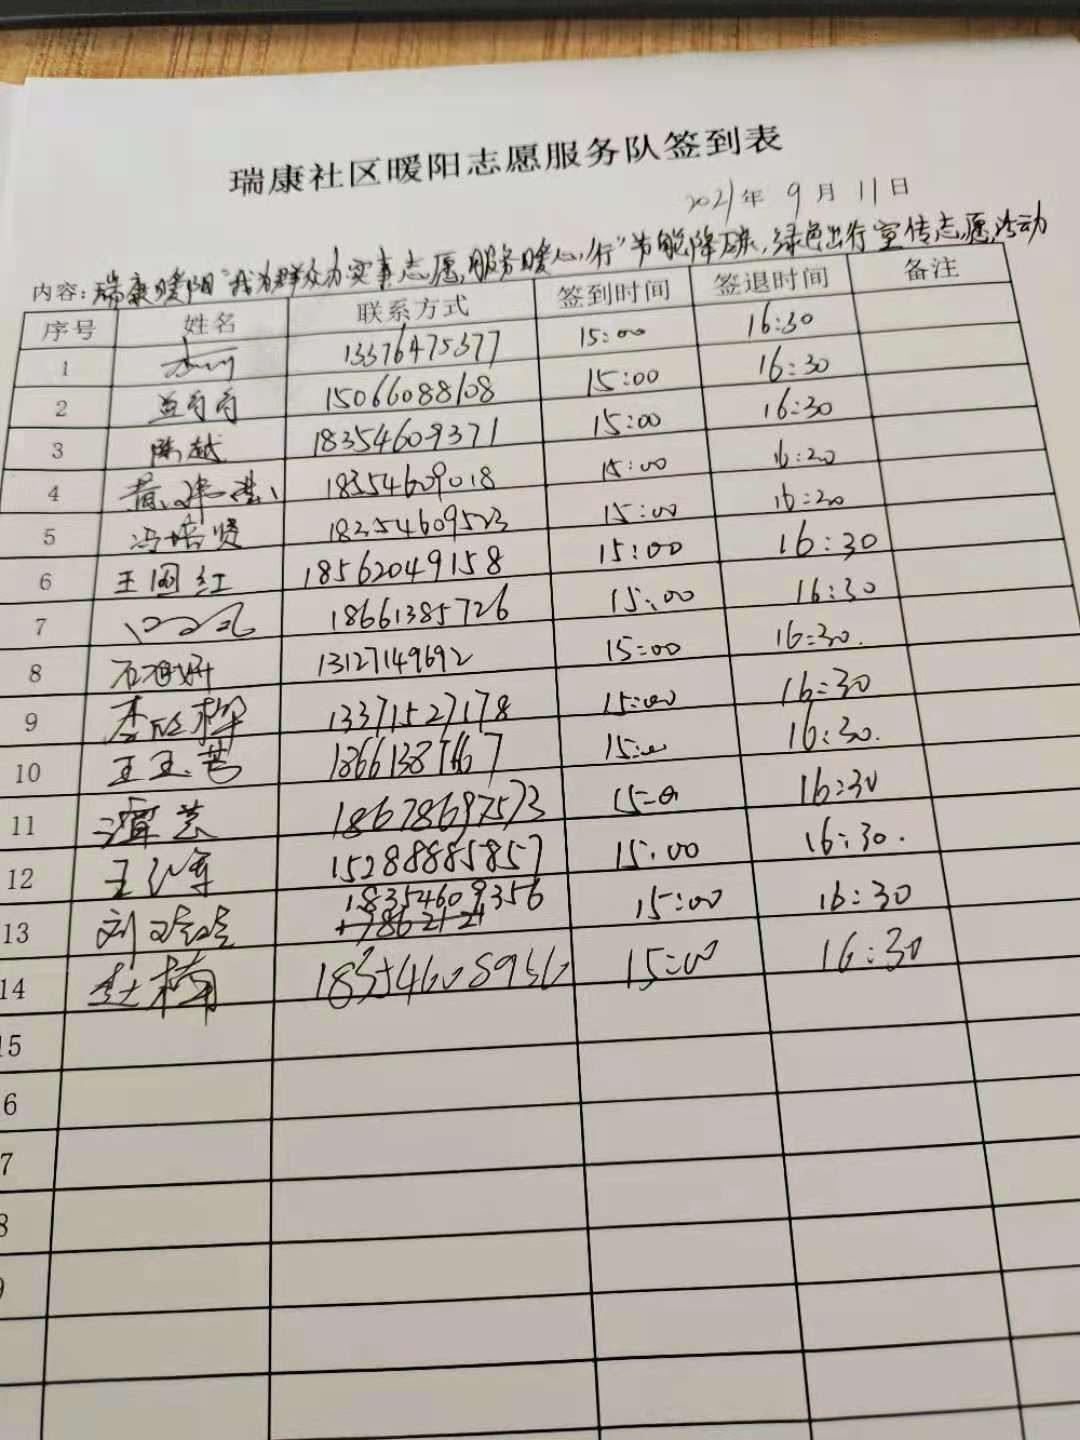 瑞康社区暖阳志愿服务队签到表
2021年 9月 11日
内容: 瑞康暖阳"我为群众办实事志愿服务暖心行"节能降碳,绿色出行宣传志愿活动
序号 姓名 联系方式 签到时间 签退时间 备注
1 13376475377 15:00 16:30
2 15066088108 15:00 16:30
3 陈越 18354609371 15:00 16:30
4 18354609018 15:00 16:20
5 冯培贤 18354609523 15:00 16:20
6 王国红 18562049158 15:00 16:30
7 18661385726 15:00 16:30
8 13127149692 15:00 16:30.
9 李欣桦 13371527178 15:00 16:30
10 王玉芸 15:00 16:30.
11 谭芸 18678697573 15:00 16:30
12 15288885857 15:00 16:30.
13 刘晓晓 18354609356 15:00 16:30
14 赵楠 18354608936 15:00 16:30
15
6
7
8
9